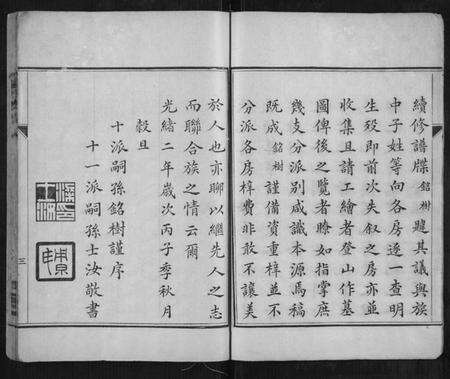 續修譜牒銘樹贊其議與族
中子姓等向各房逐一查明
生歿即前次失叙之房亦並
收集且請工繪者登山作墓
圖俾後之覽者瞭如指掌庶
幾支分派別咸識本源焉稿
既成銘樹謹備資重梓並不
分派各房梓費非敢不讓美
於人也亦聊以繼先人之志
而聯合族之情云爾
光緒二年歲次丙子季秋月
穀旦
十派嗣孫銘樹謹序
十一派嗣孫士汝敬書
三